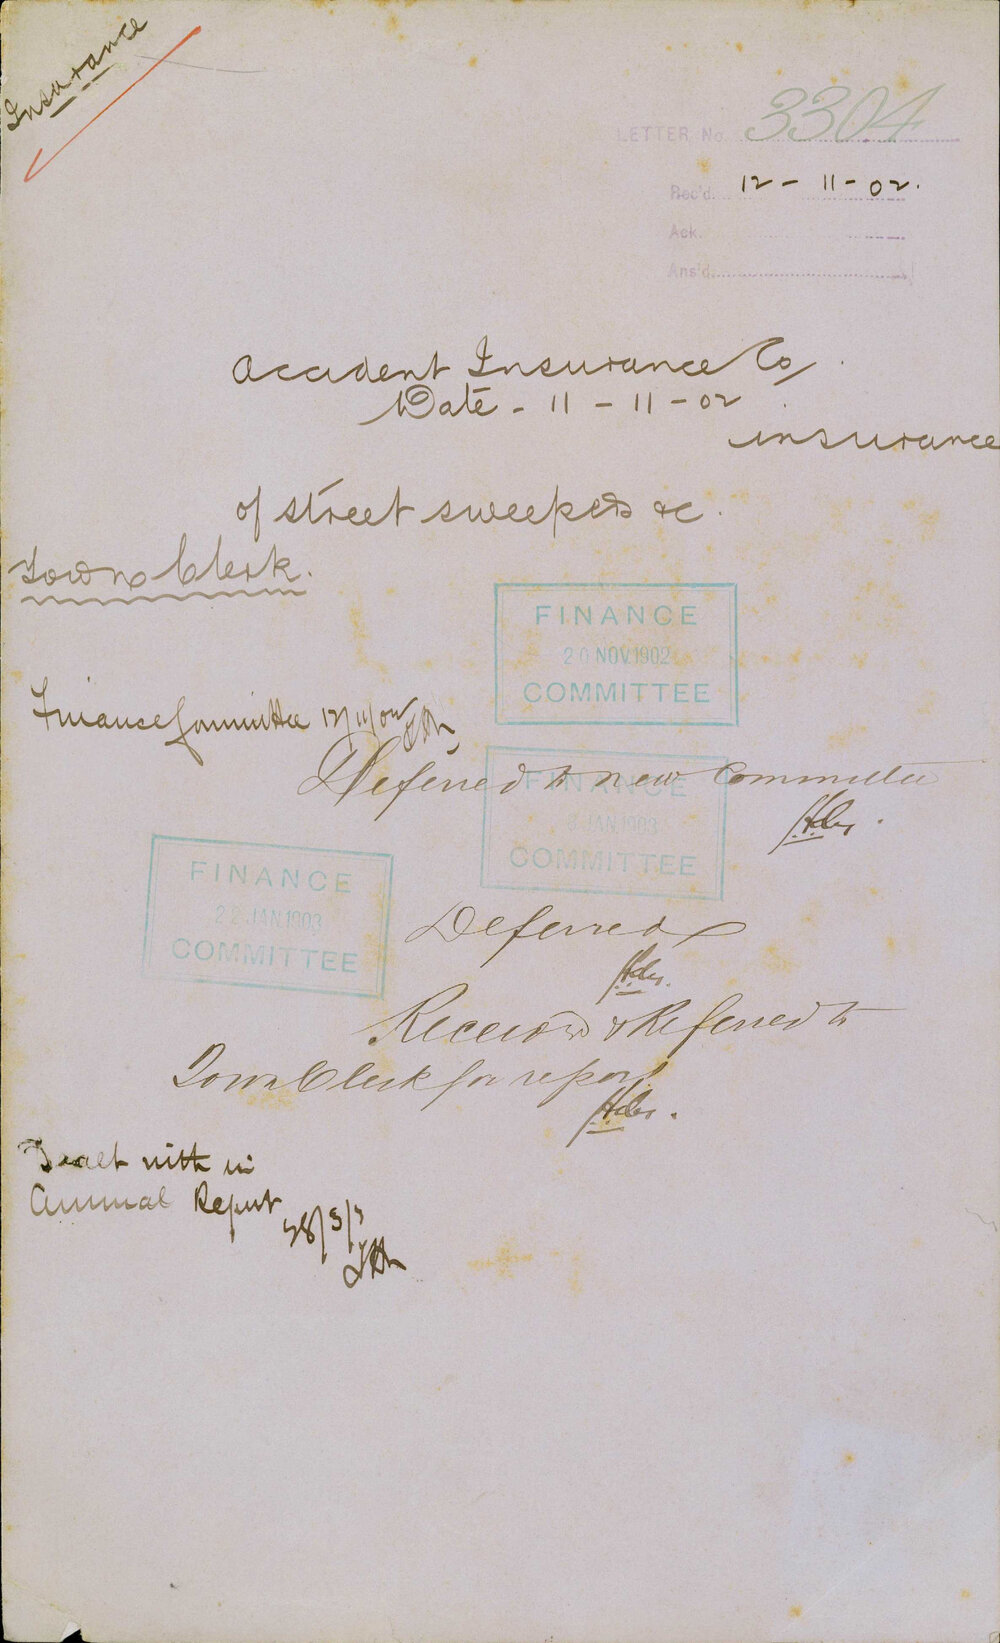 Insurance
LETTER No. 3304
Rec'd. 12 - 11 - 02.
Ack.
Ans'd.
Accident Insurance Co/
Date - 11 - 11 - 02
insurance
of street sweepers &c.
Town Clerk.
FINANCE
20 NOV 1902
COMMITTEE
Finance Committee 12/11/02
Deferred to new Committee
FINANCE
2 JAN 1903
COMMITTEE
FINANCE
22 JAN 1903
COMMITTEE
Deferred
Received & Referred to
Town Clerk for report
Dealt with in
Annual Report
28/3/3